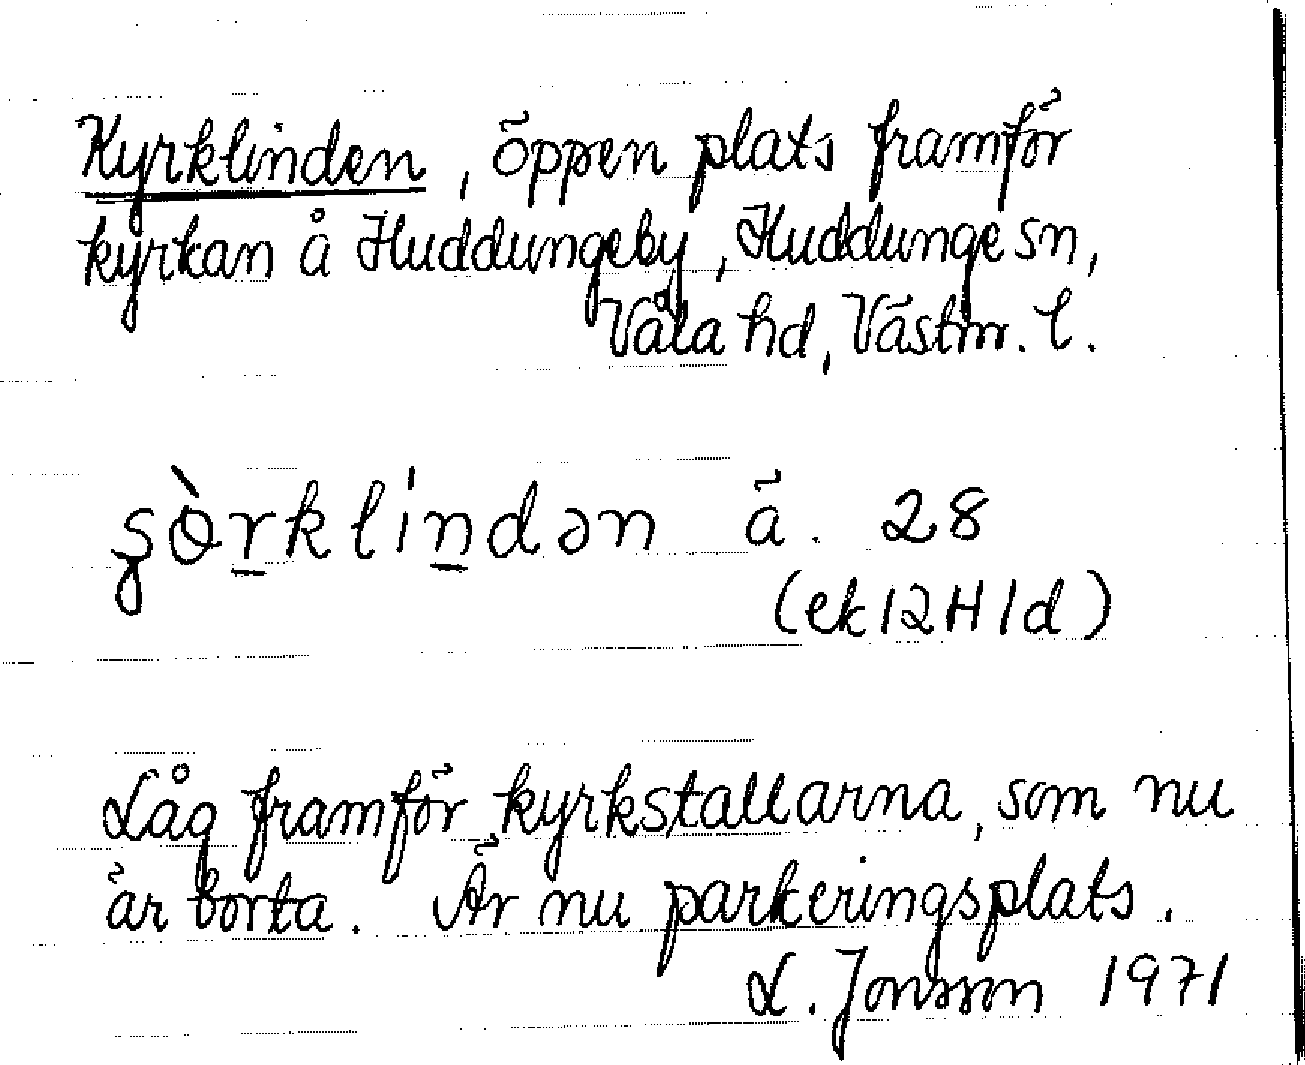 Kyrklinden, öppen plats framför
kyrkan å Huddungeby, Huddunge sn,
Våla hd, Västm. l.
ȿɵ̀r̲kli̍n̲dən ä. 28
(ek 12H1d)
Låg framför kyrkstallarna, som nu
är borta. Är nu parkeringsplats.
L. Jonsson 1971